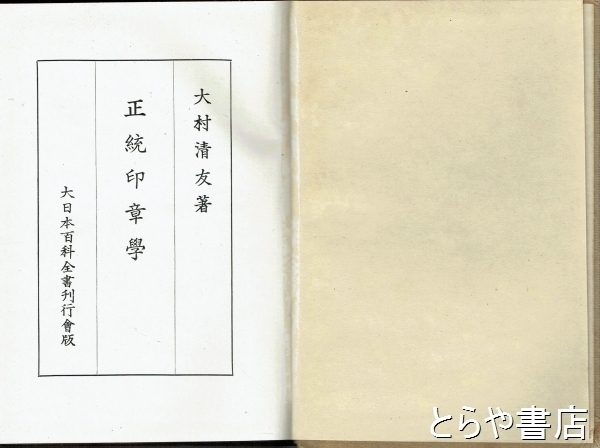 大村清友著
正統印章學
大日本百科全書刊行會版
とらや書店